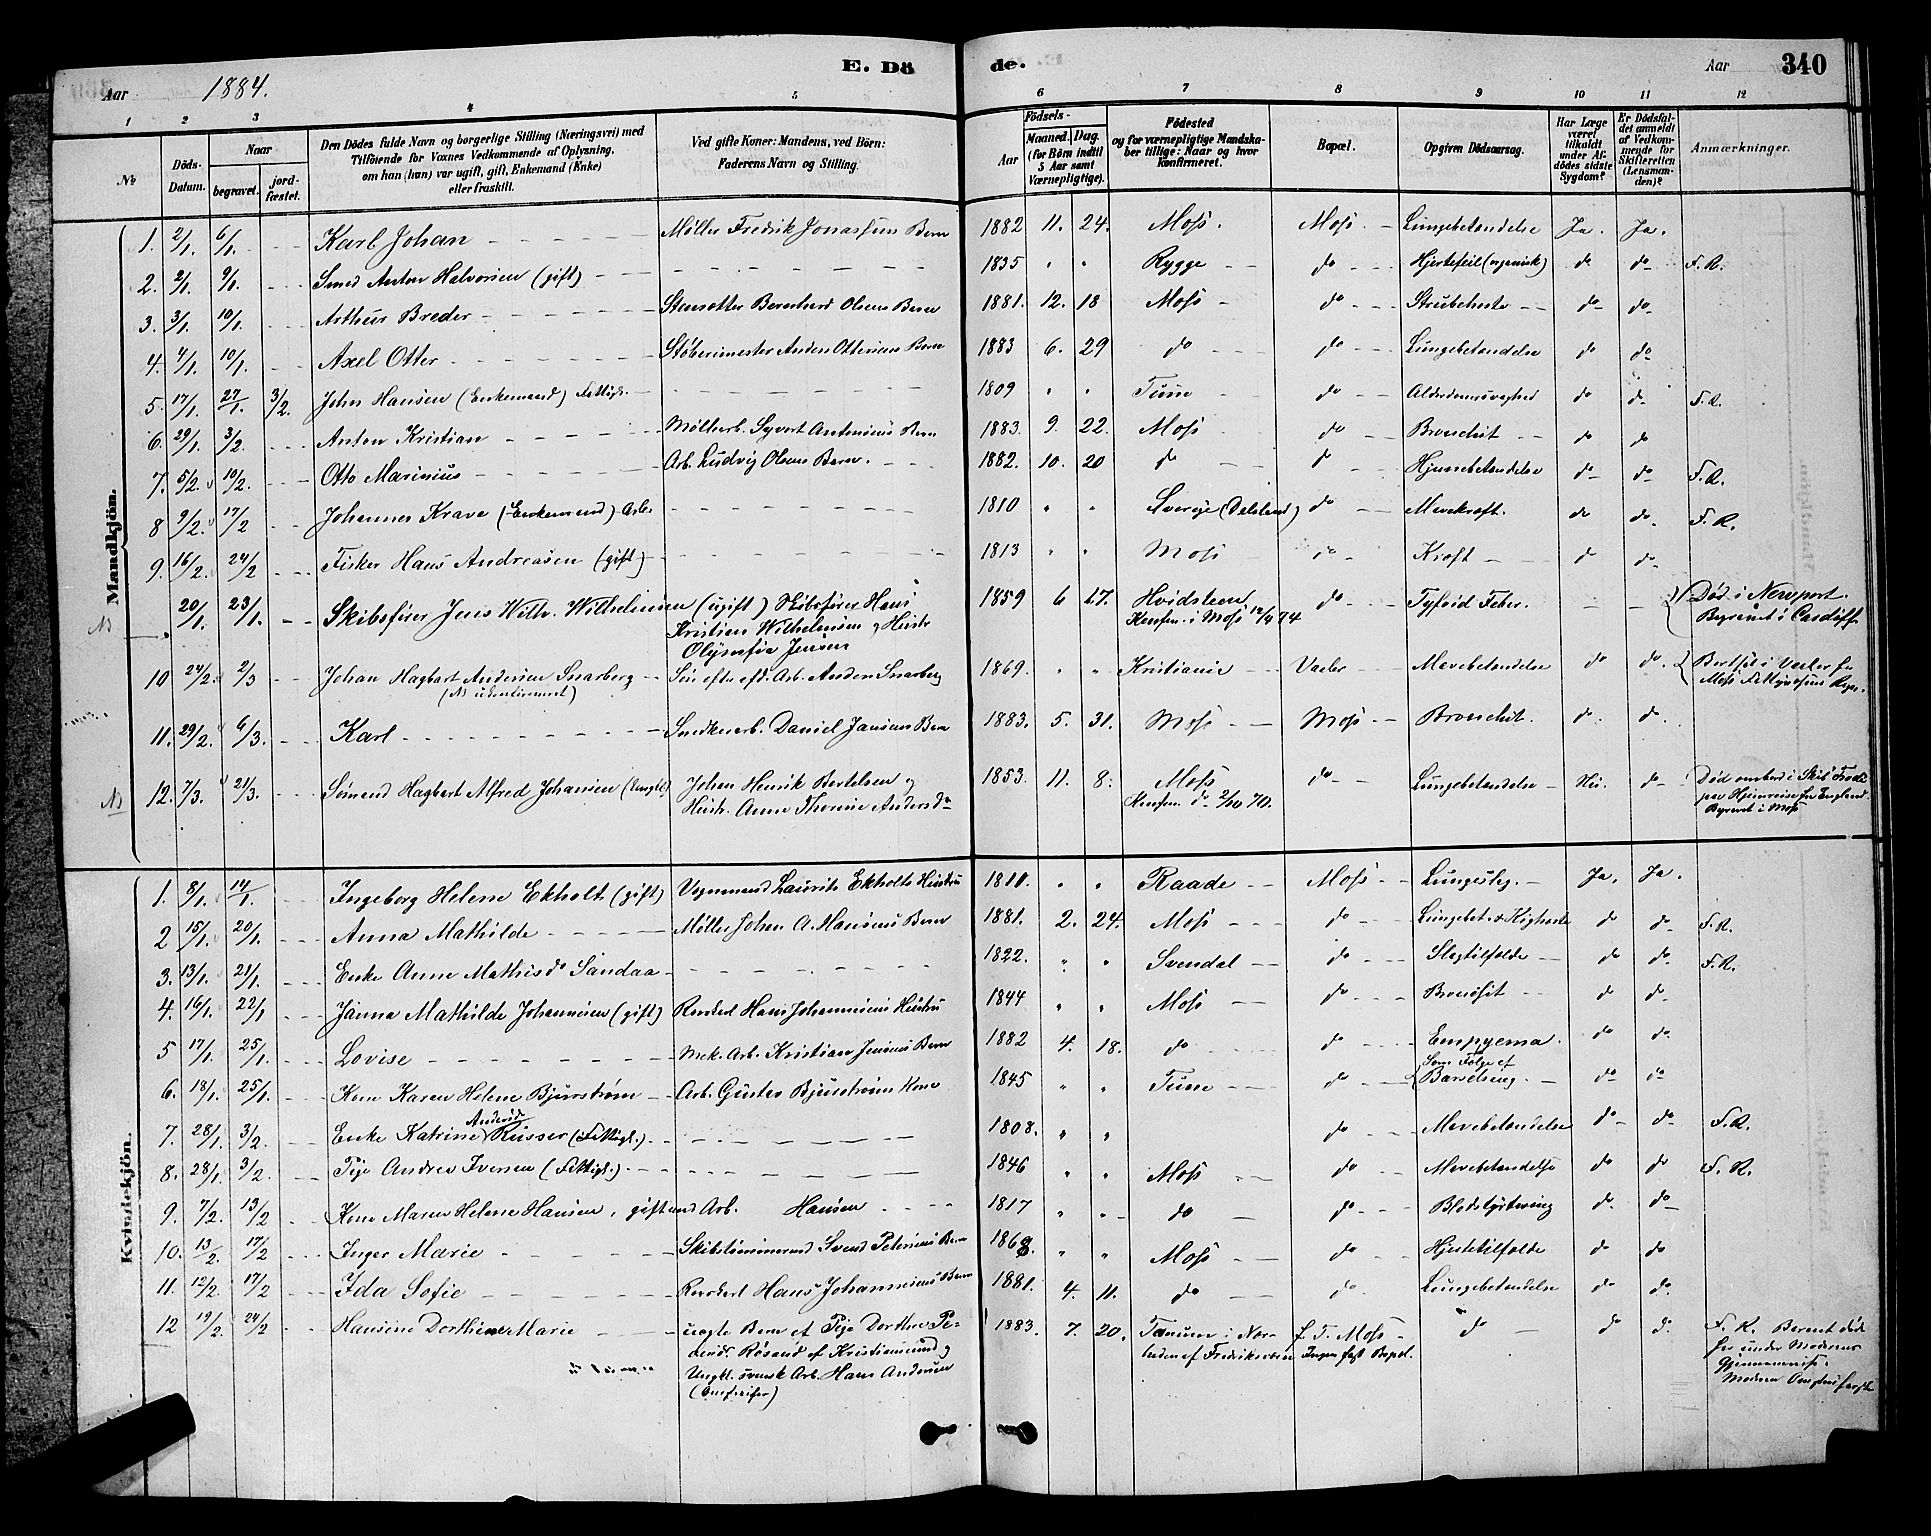 E. Dö de.
340
Aar 1884.
Aar
1 2 3 4 5 6 7 8 9 10 11 12
№
Döds-Datum.
Naar
begravet.
jord-fæstet.
Den Dödes fulde Navn og borgerlige Stilling (Næringsvei) med
Tilföiende for Voxnes Vedkommende af Oplysning,
om han (hun) var ugift, gift, Enkemand (Enke)
eller fraskilt.
Ved gifte Koner: Mandens, ved Börn:
Faderens Navn og Stilling.
Födsels-
Aar
Maaned. Dag.
(for Börn indtil
5 Aar samt
Værnepligtige).
Födested
og for værnepligtige Mandska-
ber tillige: Naar og hvor
konfirmeret.
Bopæl.
Opgiven Dödsaarsag.
Har Læge
været
tilkaldt
under Af-
dödes sidste
Sygdom?
Er Dödsfal-
det anmeldt
af Vedkom-
mende for
Skifteretten
(Lensman-
den)?
Anmærkninger.
Mandkjön.
1. 2/1. 6/1. Karl Johan Møller Fredrik Jonassens Barn 1882 11. 24. Moss. Moss. Lungebetændelse Ja. Ja.
2. 2/1. 9/1. Smed Anton Halvorsen (gift) 1835 " " Rygge do Hjertefeil (organisk) do do F. R.
3. 3/1. 10/1. Arthur Breder Bernhard Olsens Barn 1881. 12. 18 Moss do Strubehoste do do
4. 4/1. 10/1. Axel Otter Støberimester Anders Ottersens Barn 1883 6. 29 do do Lungebetændelse do do
5. 17/1. 27/1. 3/2. John Hansen (Enkemand) Fattigl. 1809 " " Tune do Alderdomssvaghed do do F. R.
6. 29/1. 3/2. Anton Kristian Møllearb. Syvert Antonsens Barn 1883. 9. 22. Moss do Bronchit do do
7. 5/2. 10/2. Otto Marinius Arb. Ludvig Olsens Barn. 1882. 10. 20 do do Hjernebetændelse do do F. R.
8 9/2. 17/2 Johannes Krave (Enkemand) Arb. 1810 " " Sverige (Dalsland) do Mavekræft. do do. F. R.
9. 16/2. 24/2 Fisker Hans Andreasen (gift) 1813 " " Moss do Kræft do do
NB 20/1. 23/1. Skibsfører Jens Wilh. Wilhelmsen (ugift) Skibsfører Hans 1859 6 27. Hvidsteen do Tyfoid Feber. Død i Newport.
Kristian Wilhelmsen og Hustr Konfm. i Moss Begravet i Cardiff
Jensen
10 24/2. 2/3 Johan Hagbart Andersen Snarberg Søn efter afd. Arb. Anders Snarberg 1869. " " Kristiania Vaaler Mavebetændelse do do. Bortsat i Vaaler fra
(NB ukonfirmeret) Moss
11. 29/2. 6/3. Karl Snedkerarb. Daniel Jansens Barn 1883. 5. 31. Moss Moss Bronchit. do. do.
NB 12. 7/3. 21/3. Sømand Hagbart Alfred Johansen (Ungkl) Johan Henrik Bertelsen og 1853. 11. 8. Moss do Lungebetændelse Nei. do. Død ombord i Skib
Hustr. Anne Thorine Andersd. Konfm. do 2/10 70. paa Hjemreise fra England.
Begravet i Moss
Kvindekjön.
1. 8/1. 14/1. Ingeborg Helene Ekholt (gift) Vognmand Laurits Ekholts Hustru 1811. " " Raade Moss Lungeslag. Ja. Ja.
2 15/1. 20/1. Anna Mathilde Møller Johan A. Hansens Barn 1881. 2. 24. Moss do Lungebet. & Kighoste do do F. R.
3. 13/1. 21/1. Enke Anne Mathisd. Sandaa 1822. " " Svendal do Slagtilfælde do do F. R.
4. 16/1. 22/1 Janna Mathilde Johannesen (gift) Hans Johannesens Hustru 1844 " " Moss do do do
5 17/1. 25/1. Lovise Mek. Arb. Kristian Jensens Barn 1882 4. 18. do do Empyema. do do.
6. 18/1. 25/1. Kone Karen Helene Bjurstrøm Arb. Gustav Bjurstrøms Kone 1845 " " Tune do Som Følge af
Barselseng. do do
7. 28/1. 3/2. Enke Katrine Russer (Fattigl.) 1808. " " do Mavebetændelse do do. F. R.
8. 28/1. 3/2. Pige Andrea Iversen (Fattigl.) 1846 " " Moss do Mavebetændelse do do F. R.
9. 7/2. 13/2 Kone Maren Helene Hansen, gift med Arb. Hansen 1817 " " do do Blodstyrtning do. do
10. 13/2. 17/2 Inger Marie Skibstømmermand Svend Petersens Barn 1868. " " Moss do Hjertetilfælde do do
11. 12/2. 17/2 Ida Sofie Hans Johannesens Barn 1881. 4. 11. do do. Lungebetændelse do do.
12 19/2. 24/2 Hansine Dorthine Marie uægte Barn af Pige Dorthea Pe- 1883. 7. 20. Tanum i Nor- f. T. Moss do do do. F. R. Barnet døde
Røsand af Kristiansund og af Fredriksværn Ingen fast Bopæl. her under Moderens
Ungkl. svensk Arb. Hans Andersen Gjennemreise.
(Omstreifer) Moderen